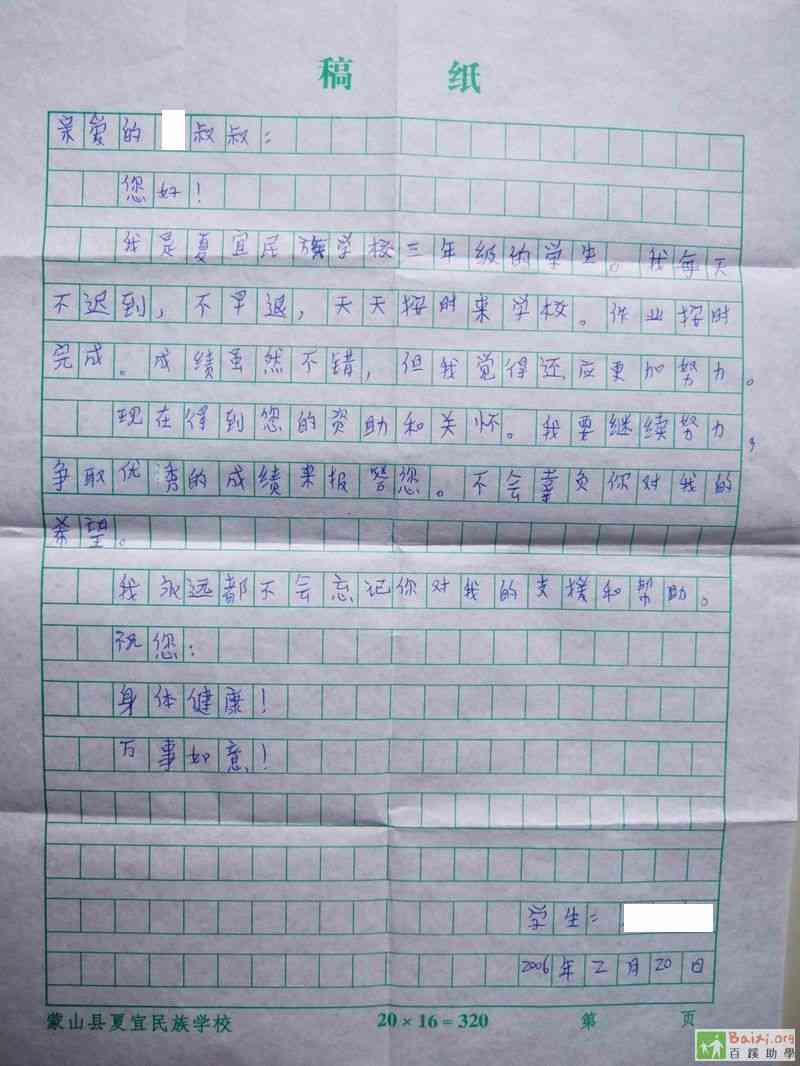 稿 纸
亲爱的 叔叔：
您好！
我是夏宜民族学校三年级的学生。我每天
不迟到，不早退，天天按时来学校。作业按时
完成。成绩虽然不错，但我觉得还应更加努力。
现在得到您的资助和关怀。我要继续努力，
争取优秀的成绩来报答您。不会辜负你对我的
希望。
我永远都不会忘记你对我的支援和帮助。
祝您：
身体健康！
万事如意！
学生：
2006年2月20日
蒙山县夏宜民族学校 20×16=320 第 页
Baixi.org
百蹊助學